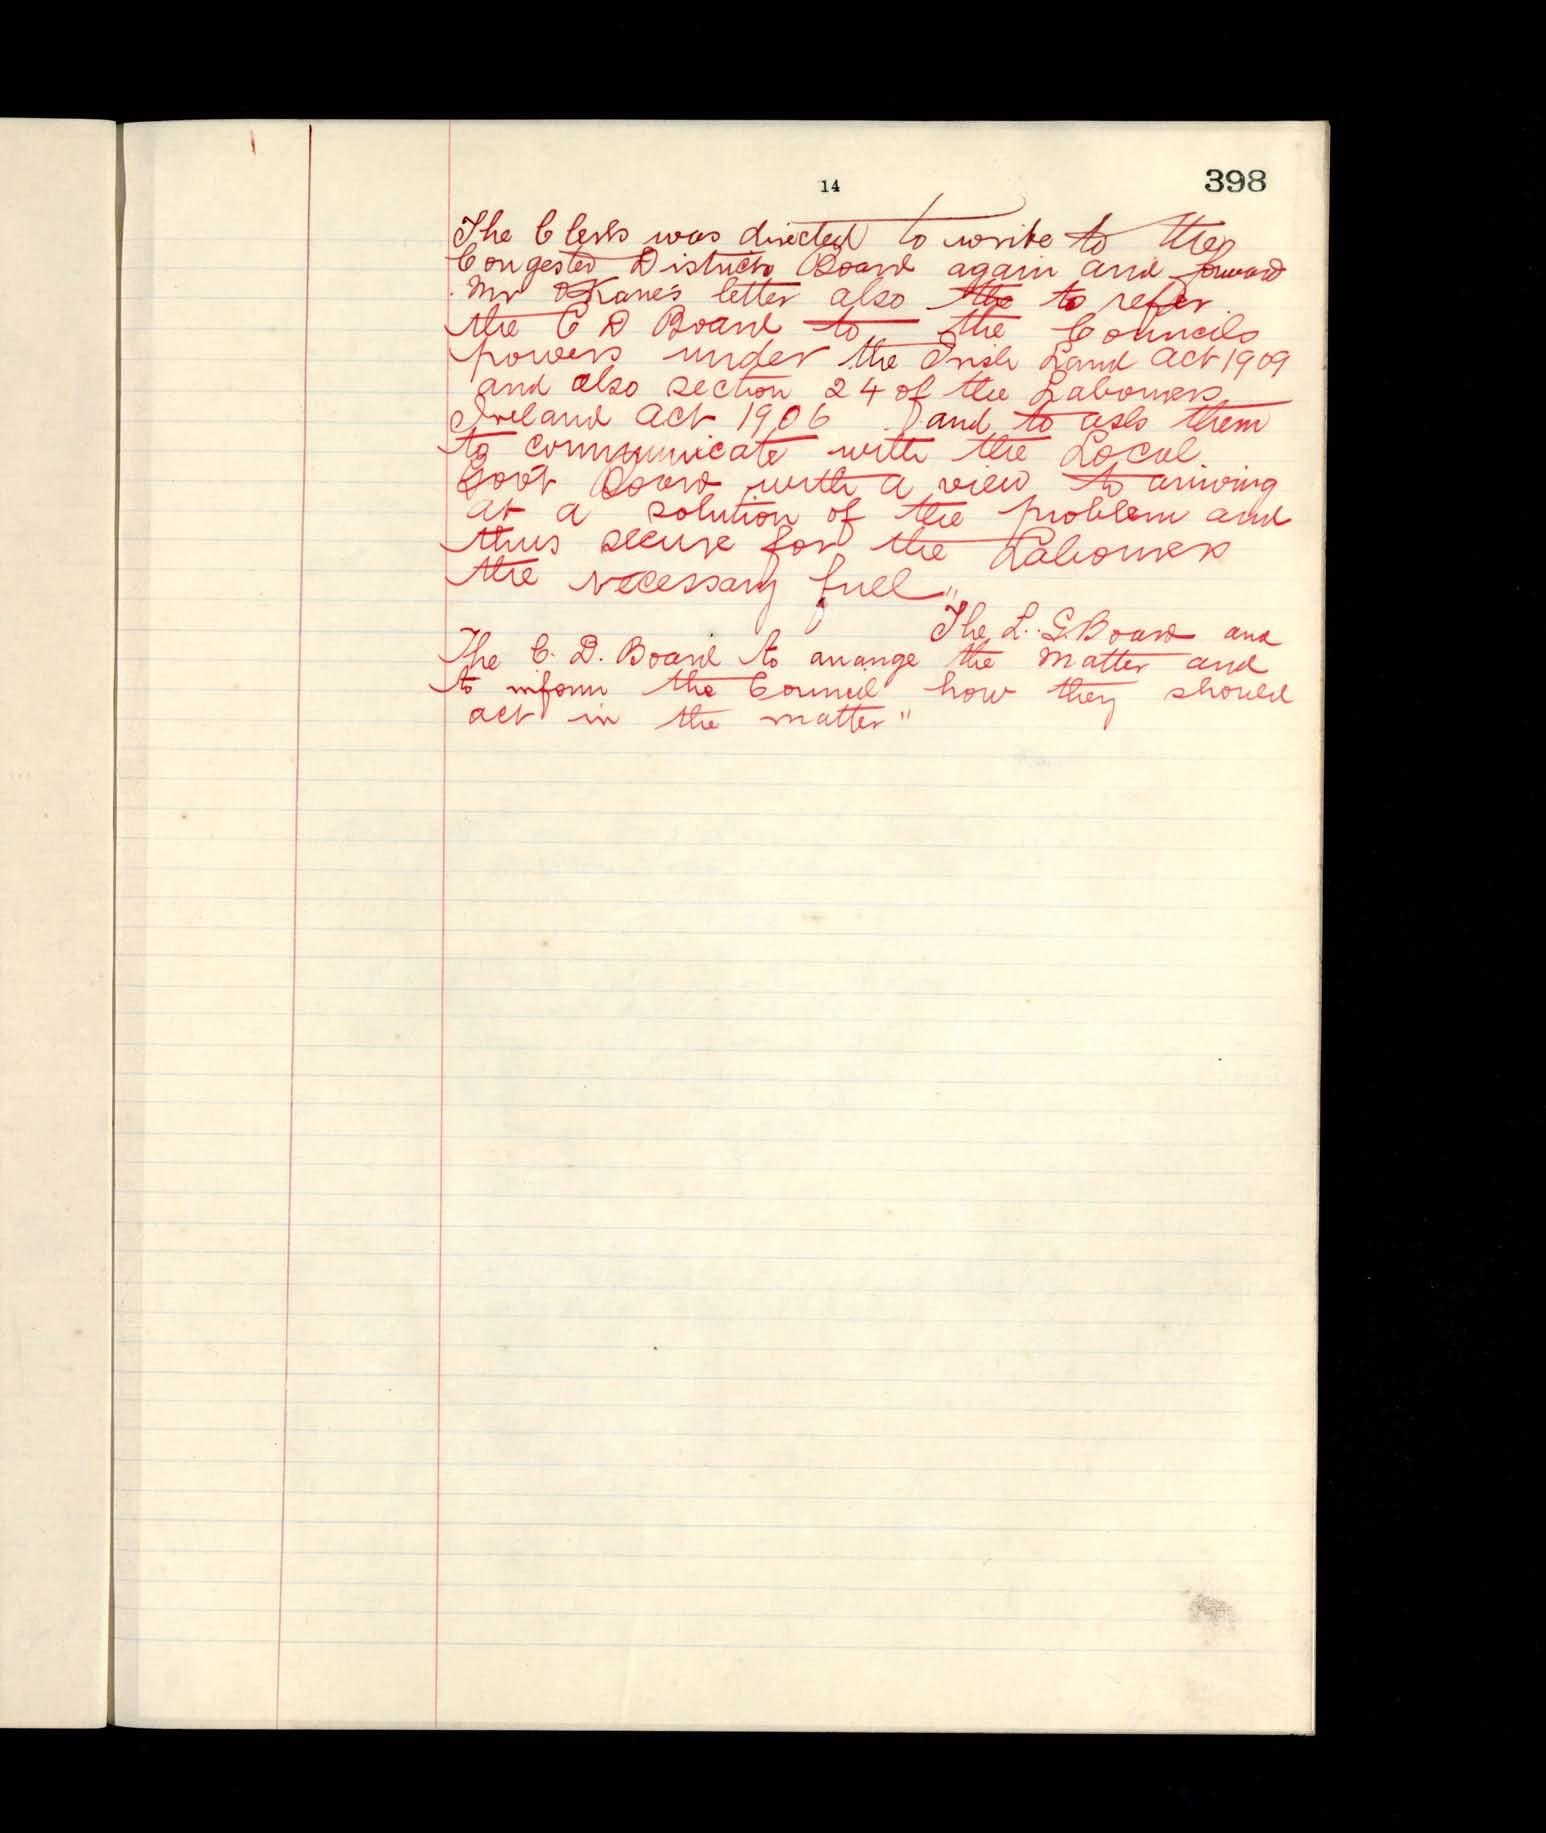 14
398
The Clerk was directed to write to the
Congested Districts Board again and forward
Mr O'Kane's letter also to refer
the C D Board to the Councils
powers under the Irish Land Act 1909
and also section 24 of the Labourers
Ireland Act 1906 and to ask them
to communicate with the Local
Govt Board with a view to arriving
at a solution of the problem and
thus secure for the Labourers
the necessary fuel"
The L. G. Board and
The C. D. Board to arrange the matter and
to inform the Council how they should
act in the matter"